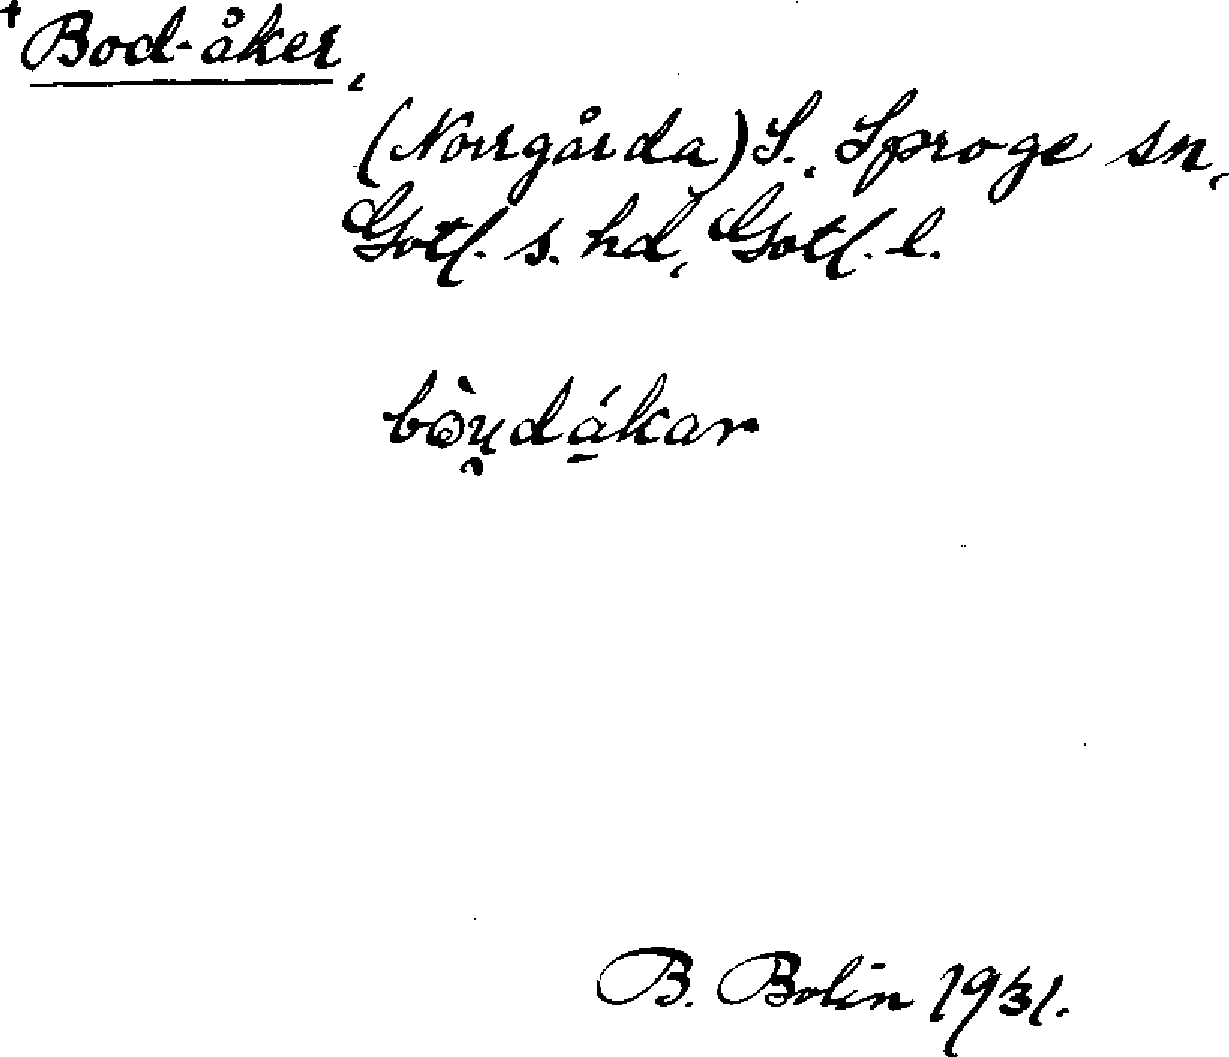 + Bod-åker,
(Norrgårda) S., Sproge sn,
Gotl. s. hd, Gotl. l.
B. Bolin 1931.